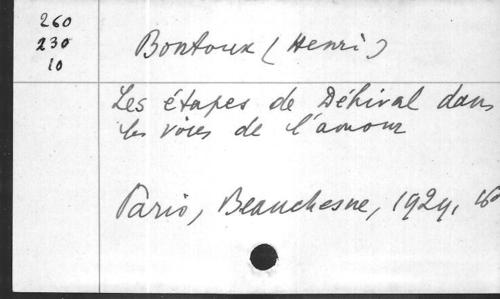 260
230
10
Bontoux (Henri)
Les étapes de Déhival dans
les voies de l'amour
Paris, Beauchesne, 1924, 16°